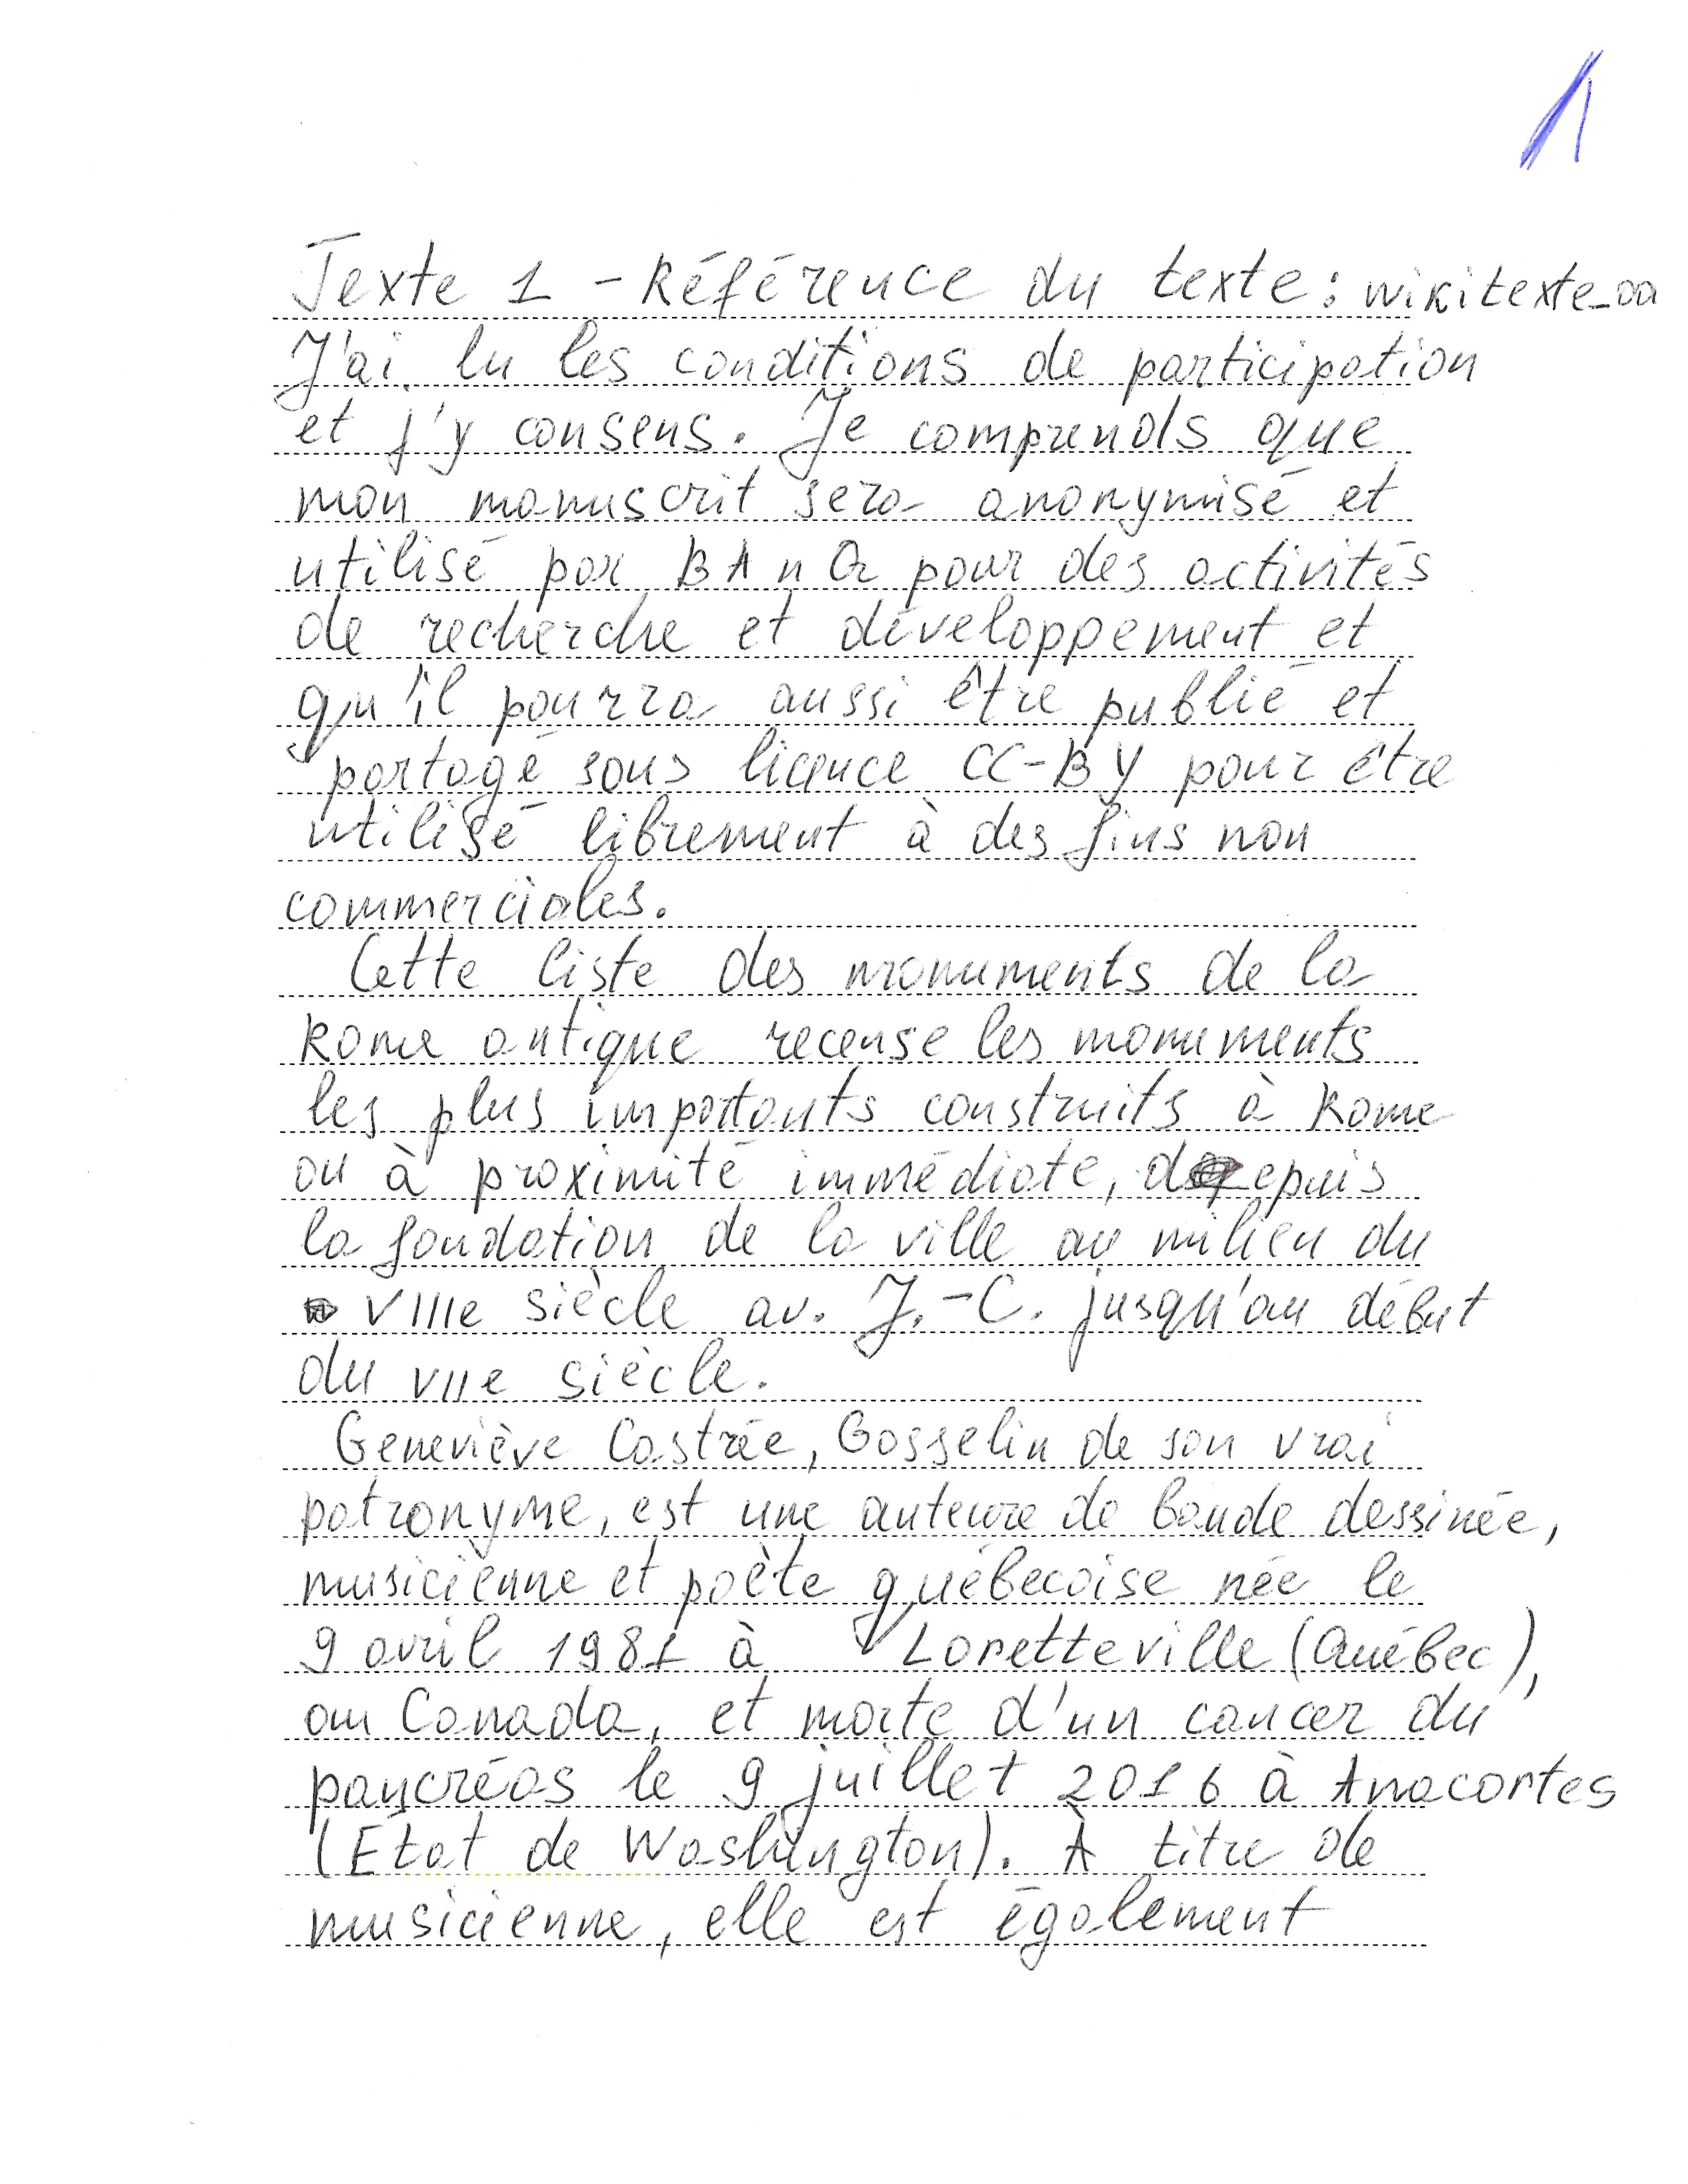 1
Texte 1 - Référence du texte : wikitexte_oa
J'ai lu les conditions de participation
et j'y consens. Je comprends que
mon manuscrit sera anonymisé et
utilisé par BAnQ pour des activités
de recherche et développement et
qu'il pourra aussi être publié et
partagé sous licence CC-BY pour être
utilisé librement à des fins non
commerciales.
Cette liste des monuments de la
Rome antique recense les monuments
les plus importants construits à Rome
ou à proximité immédiate, depuis
la fondation de la ville au milieu du
VIIIe siècle av. J.-C. jusqu'au début
du VIIe siècle.
Geneviève Castrée, Gosselin de son vrai
patronyme, est une auteure de bande dessinée,
musicienne et poète québecoise née le
9 avril 1981 à Loretteville (Québec),
au Canada, et morte d'un cancer du
pancréas le 9 juillet 2016 à Anacortes
(État de Washington). À titre de
musicienne, elle est également